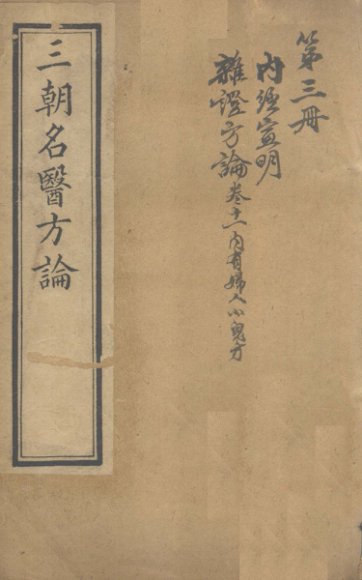 第三冊
内經宣明
雜證方論卷十一内有婦人小兒方
三朝名醫方論